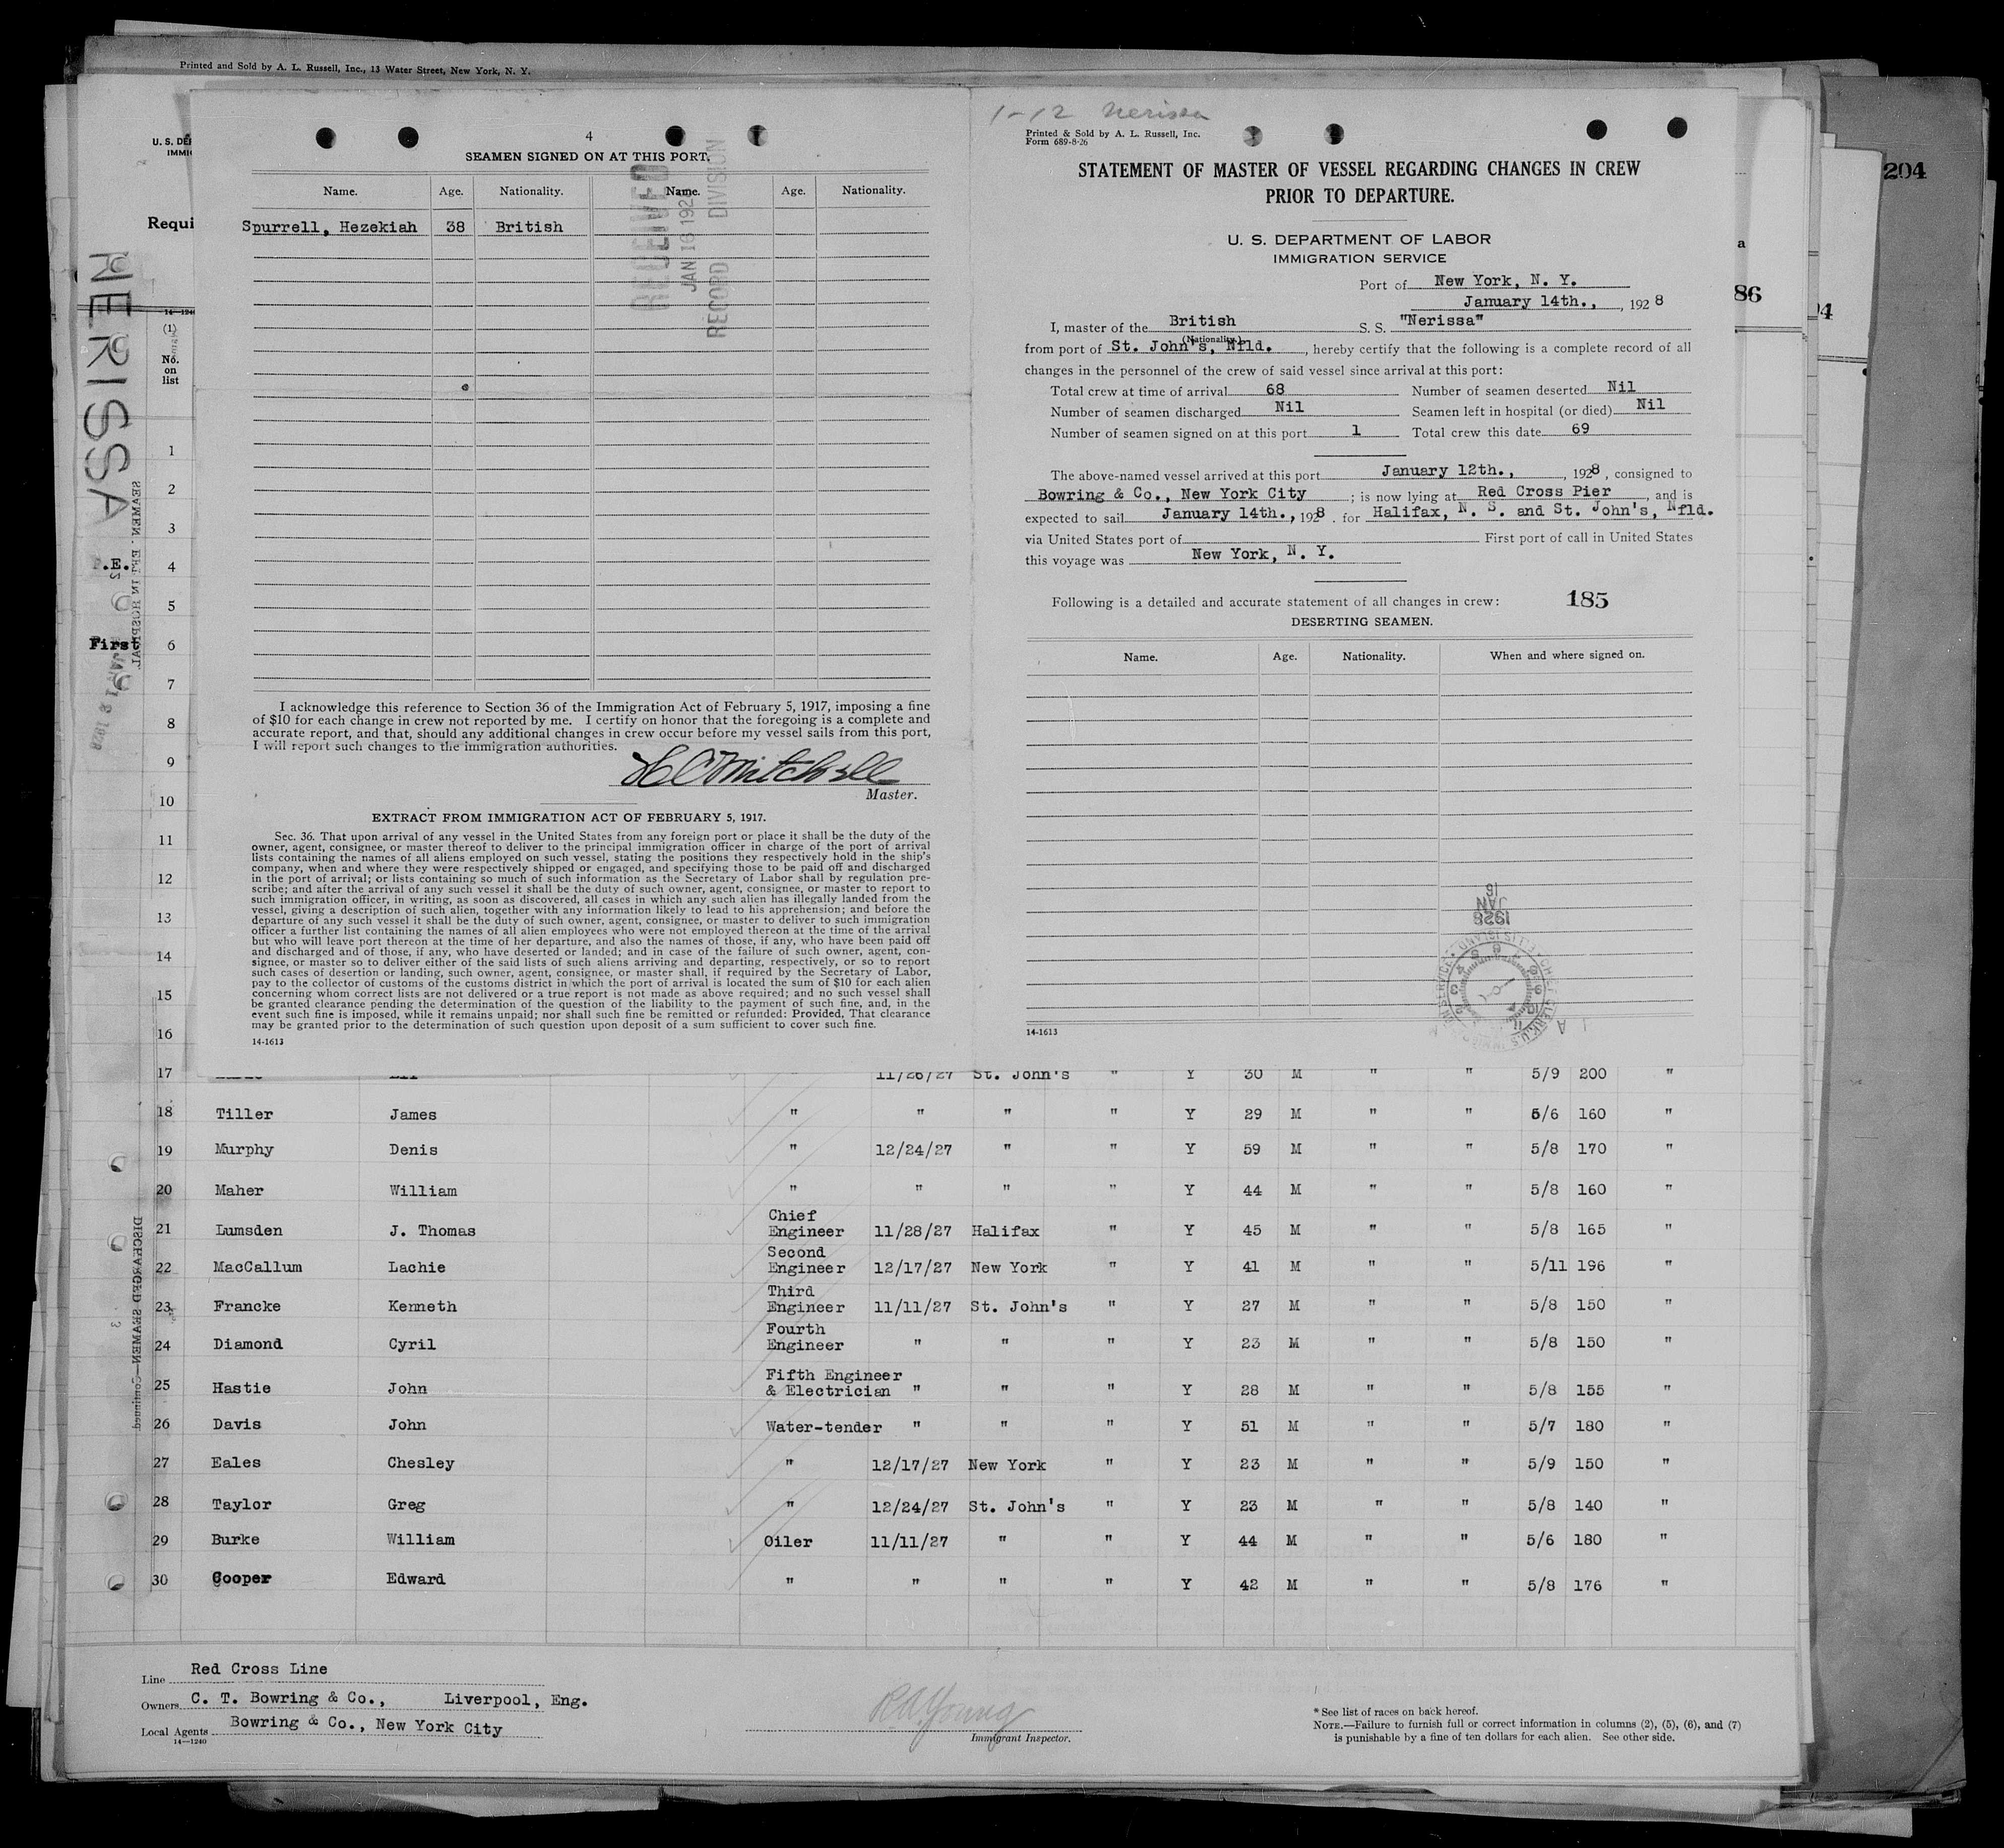 Printed and Sold by A. L. Russell, Inc., 13 Water Street, New York, N. Y.
204
U. S. DE
IMMI
Requi
NERISSA
14-124
(1)
No.
on
list
1
2
3
4
5
6
7
8
9
10
11
12
13
14
15
16
.E.
First
SEAMEN LEFT IN HOSPITAL
a
86
4
SEAMEN SIGNED ON AT THIS PORT.
Name. Age. Nationality. Name. Age. Nationality.
Spurrell, Hezekiah 38 British
RECEIVED
JAN 16 192
RECORD DIVISION
I acknowledge this reference to Section 36 of the Immigration Act of February 5, 1917, imposing a fine
of $10 for each change in crew not reported by me. I certify on honor that the foregoing is a complete and
accurate report, and that, should any additional changes in crew occur before my vessel sails from this port,
I will report such changes to the immigration authorities.
H C Mitchell
Master.
EXTRACT FROM IMMIGRATION ACT OF FEBRUARY 5, 1917.
Sec. 36. That upon arrival of any vessel in the United States from any foreign port or place it shall be the duty of the
owner, agent, consignee, or master thereof to deliver to the principal immigration officer in charge of the port of arrival
lists containing the names of all aliens employed on such vessel, stating the positions they respectively hold in the ship's
company, when and where they were respectively shipped or engaged, and specifying those to be paid off and discharged
in the port of arrival; or lists containing so much of such information as the Secretary of Labor shall by regulation pre-
scribe; and after the arrival of any such vessel it shall be the duty of such owner, agent, consignee, or master to report to
such immigration officer, in writing, as soon as discovered, all cases in which any such alien has illegally landed from the
vessel, giving a description of such alien, together with any information likely to lead to his apprehension; and before the
departure of any such vessel it shall be the duty of such owner, agent, consignee, or master to deliver to such immigration
officer a further list containing the names of all alien employees who were not employed thereon at the time of the arrival
but who will leave port thereon at the time of her departure, and also the names of those, if any, who have been paid off
and discharged and of those, if any, who have deserted or landed; and in case of the failure of such owner, agent, con-
signee, or master so to deliver either of the said lists of such aliens arriving and departing, respectively, or so to report
such cases of desertion or landing, such owner, agent, consignee, or master shall, if required by the Secretary of Labor,
pay to the collector of customs of the customs district in which the port of arrival is located the sum of $10 for each alien
concerning whom correct lists are not delivered or a true report is not made as above required; and no such vessel shall
be granted clearance pending the determination of the question of the liability to the payment of such fine, and, in the
event such fine is imposed, while it remains unpaid; nor shall such fine be remitted or refunded: Provided, That clearance
may be granted prior to the determination of such question upon deposit of a sum sufficient to cover such fine.
14-1613
1-12 Nerissa
Printed & Sold by A. L. Russell, Inc.
Form 689-8-26
STATEMENT OF MASTER OF VESSEL REGARDING CHANGES IN CREW
PRIOR TO DEPARTURE.
U. S. DEPARTMENT OF LABOR
IMMIGRATION SERVICE
Port of New York, N. Y.
January 14th., , 192 8
I, master of the British S. S. "Nerissa"
(Nationality.)
from port of St. John's, Nfld. , hereby certify that the following is a complete record of all
changes in the personnel of the crew of said vessel since arrival at this port:
Total crew at time of arrival 68 Number of seamen deserted Nil
Number of seamen discharged Nil Seamen left in hospital (or died) Nil
Number of seamen signed on at this port 1 Total crew this date 69
The above-named vessel arrived at this port January 12th., , 1928 , consigned to
Bowring & Co., New York City ; is now lying at Red Cross Pier , and is
expected to sail January 14th., 1928 . for Halifax, N. S. and St. John's, Nfld.
via United States port of First port of call in United States
this voyage was New York, N. Y.
Following is a detailed and accurate statement of all changes in crew: 185
DESERTING SEAMEN.
Name. Age. Nationality. When and where signed on.
16
JAN
1928
14-1613
17 11/26/27 St. John's " Y 30 M " " 5/9 200 "
18 Tiller James " " " " Y 29 M " " 5/6 160 "
19 Murphy Denis " 12/24/27 " " Y 59 M " " 5/8 170 "
20 Maher William " " " " Y 44 M " " 5/8 160 "
21 Lumsden J. Thomas Chief Engineer 11/28/27 Halifax " Y 45 M " " 5/8 165 "
22 MacCallum Lachie Second Engineer 12/17/27 New York " Y 41 M " " 5/11 196 "
23 Francke Kenneth Third Engineer 11/11/27 St. John's " Y 27 M " " 5/8 150 "
24 Diamond Cyril Fourth Engineer " " " Y 23 M " " 5/8 150 "
25 Hastie John Fifth Engineer & Electrician " " " Y 28 M " " 5/8 155 "
26 Davis John Water-tender " " " Y 51 M " " 5/7 180 "
27 Eales Chesley " 12/17/27 New York " Y 23 M " " 5/9 150 "
28 Taylor Greg " 12/24/27 St. John's " Y 23 M " " 5/8 140 "
29 Burke William Oiler 11/11/27 " " Y 44 M " " 5/6 180 "
30 Cooper Edward " " " " Y 42 M " " 5/8 176 "
DISCHARGED SEAMEN—Continued
3
Line Red Cross Line
Owners C. T. Bowring & Co., Liverpool, Eng.
Local Agents Bowring & Co., New York City
14-1240
R A Young
Immigrant Inspector.
* See list of races on back hereof.
NOTE.—Failure to furnish full or correct information in columns (2), (5), (6), and (7)
is punishable by a fine of ten dollars for each alien. See other side.